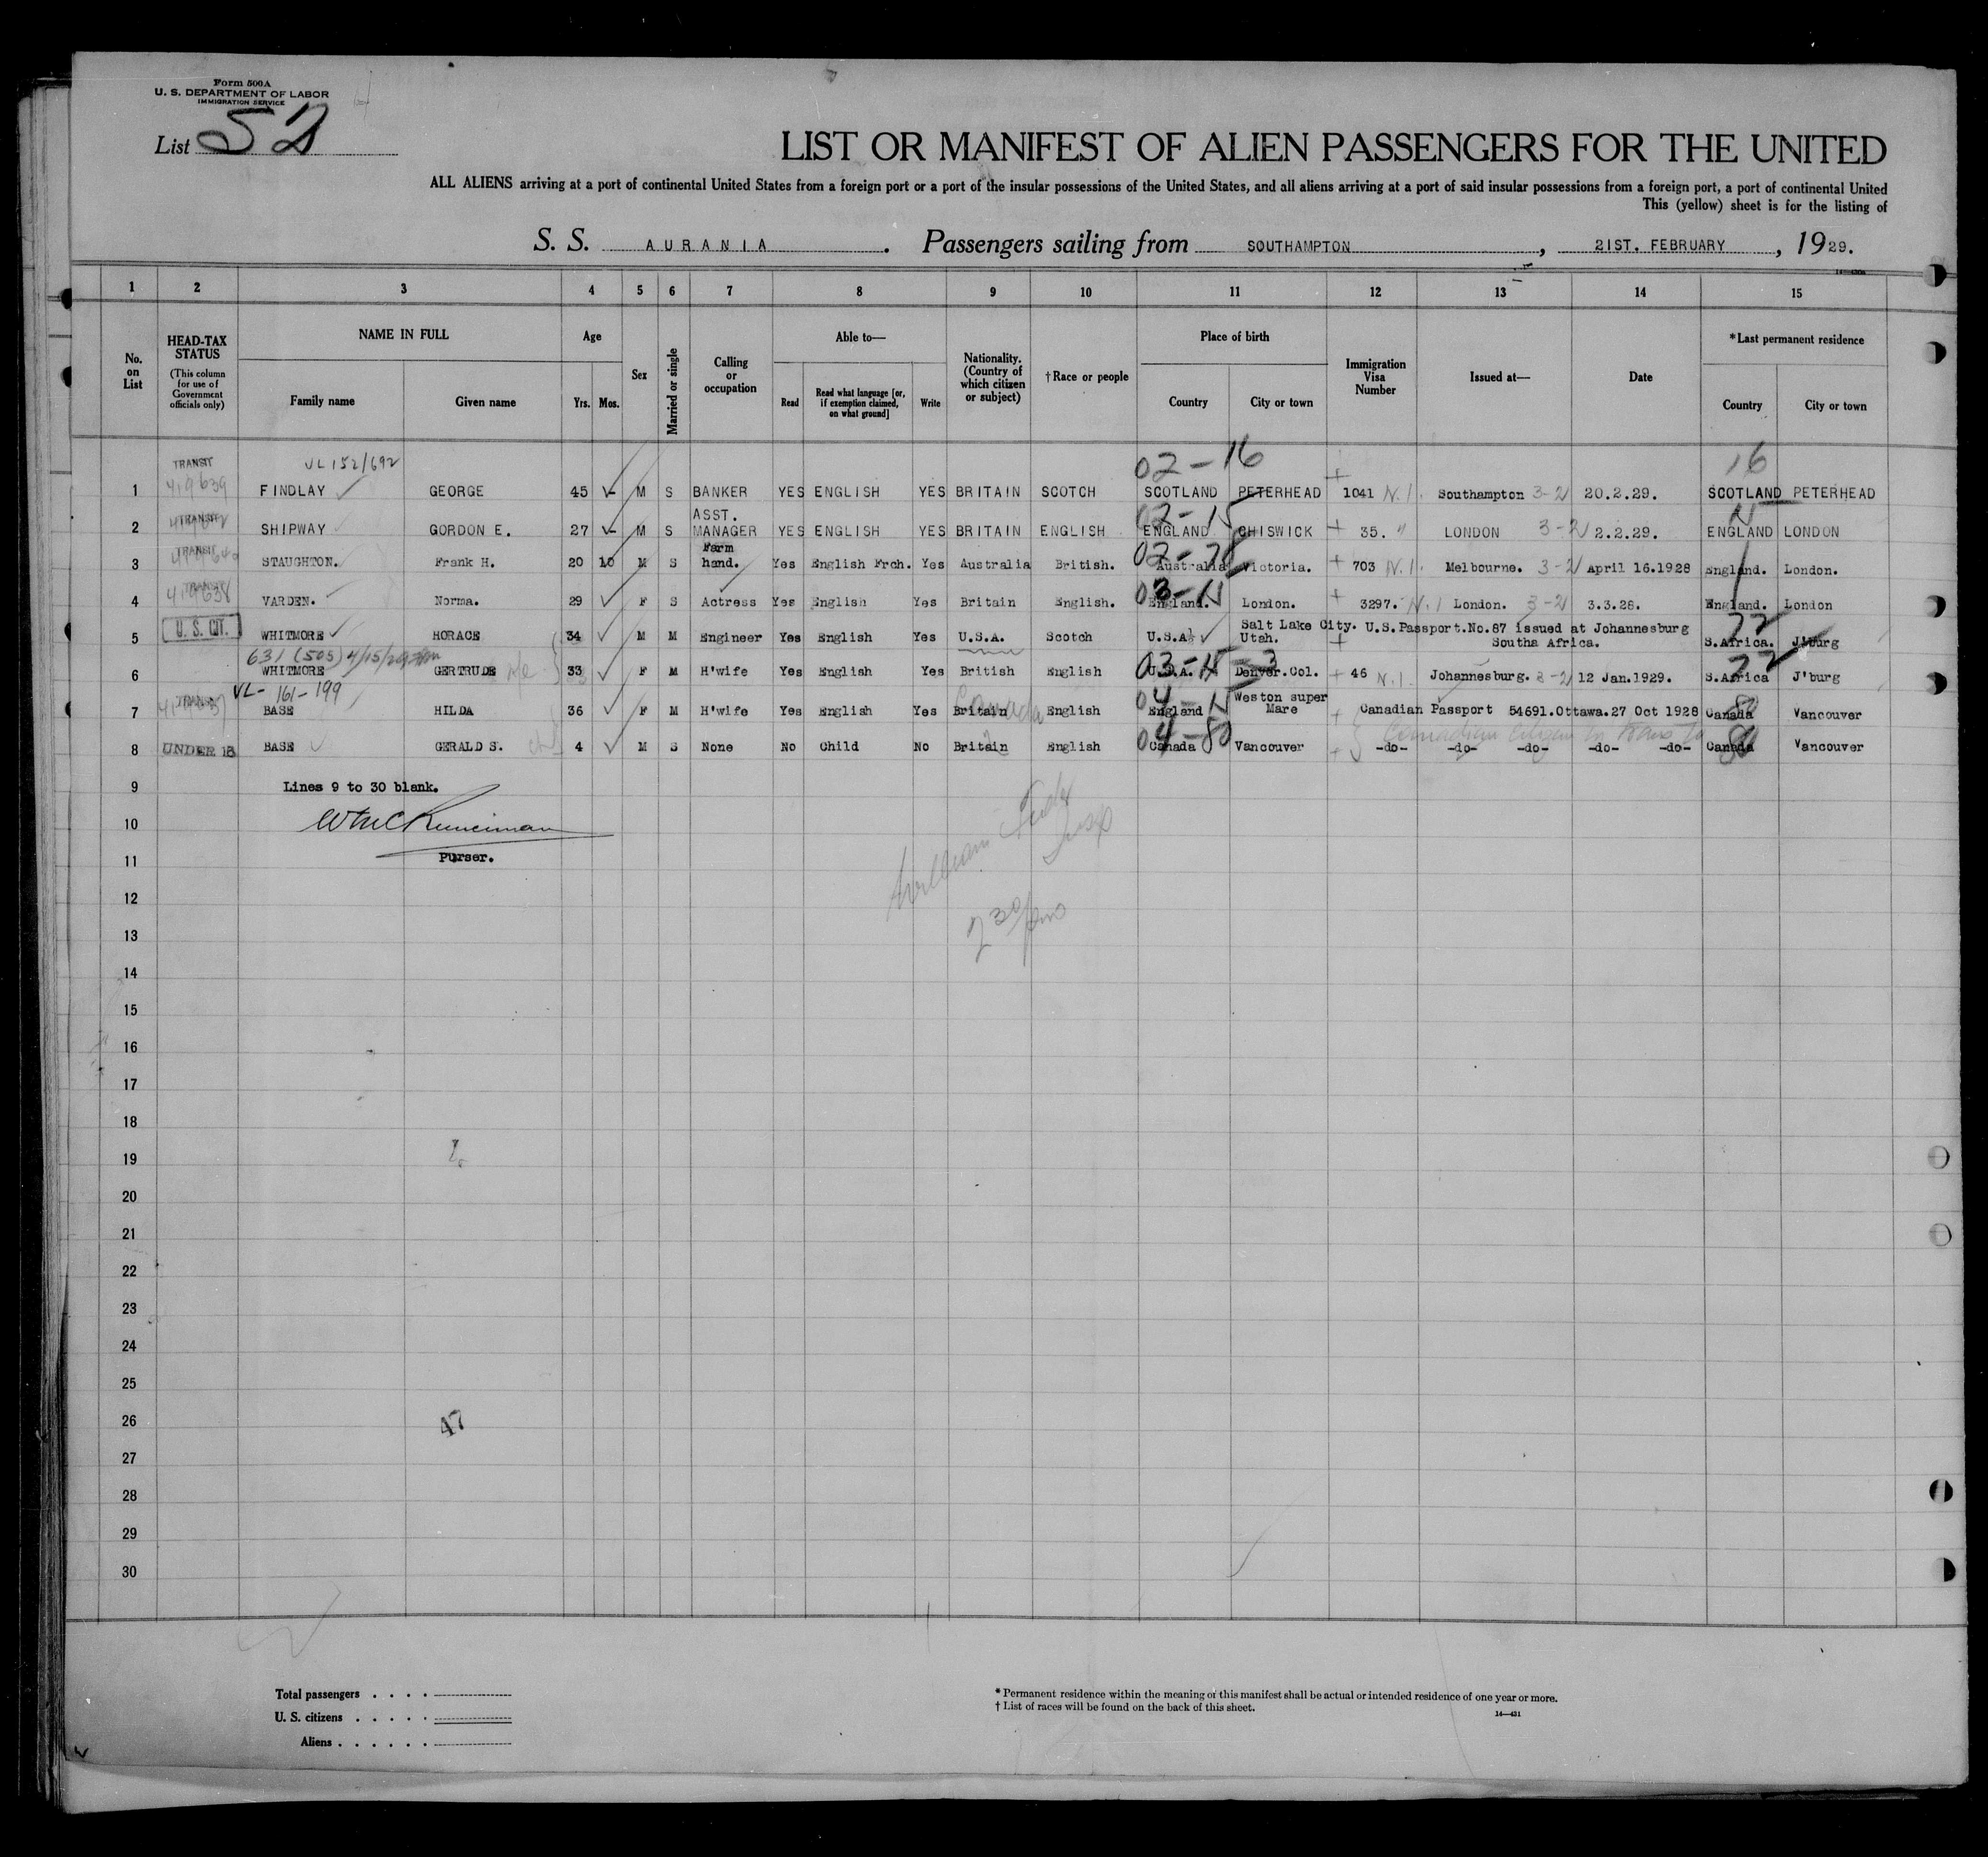 Form 500A
U. S. DEPARTMENT OF LABOR
IMMIGRATION SERVICE
List 52
LIST OR MANIFEST OF ALIEN PASSENGERS FOR THE UNITED
ALL ALIENS arriving at a port of continental United States from a foreign port or a port of the insular possessions of the United States, and all aliens arriving at a port of said insular possessions from a foreign port, a port of continental United
This (yellow) sheet is for the listing of
S. S. AURANIA . Passengers sailing from SOUTHAMPTON , 21ST. FEBRUARY , 1929.
1 2 3 4 5 6 7 8 9 10 11 12 13 14 15
No. on List
HEAD-TAX STATUS (This column for use of Government officials only)
NAME IN FULL
Family name Given name
Age
Yrs. Mos.
Sex
Married or single
Calling or occupation
Able to—
Read Read what language [or, if exemption claimed, on what ground] Write
Nationality. (Country of which citizen or subject)
†Race or people
Place of birth
Country City or town
Immigration Visa Number
Issued at—
Date
*Last permanent residence
Country City or town
VL 152/692 02-16 16
1 TRANSIT 419639 FINDLAY GEORGE 45 M S BANKER YES ENGLISH YES BRITAIN SCOTCH SCOTLAND PETERHEAD 1041 N.I. Southampton 3-2 20.2.29. SCOTLAND PETERHEAD
2 TRANSIT SHIPWAY GORDON E. 27 M S ASST. MANAGER YES ENGLISH YES BRITAIN ENGLISH 02-15 ENGLAND CHISWICK 35. " LONDON 3-2 2.2.29. ENGLAND LONDON
3 TRANSIT STAUGHTON. Frank H. 20 10 M S Farm hand. Yes English Frch. Yes Australia British. Australia Victoria. 703 N.I. Melbourne. 3-2 April 16.1928 England. London.
4 TRANSIT 419638 VARDEN. Norma. 29 F S Actress Yes English Yes Britain English. England. London. 3297. N.I London. 3-2 3.3.28. England. London
5 U. S. CIT. WHITMORE HORACE 34 M M Engineer Yes English Yes U.S.A. Scotch U.S.A. Salt Lake City. Utah. U.S.Passport.No.87 issued at Johannesburg Southa Africa. S.Africa. J'burg
631 (505) 4/15/29
6 WHITMORE GERTRUDE 33 F M H'wife Yes English Yes British English U.S.A. Denver.Col. 46 N.I. Johannesburg. 3-2 12 Jan.1929. S.Africa J'burg
VL- 161-199
7 TRANSIT BASE HILDA 36 F M H'wife Yes English Yes Britain Canada English England Weston super Mare Canadian Passport 54691.Ottawa.27 Oct 1928 Canada Vancouver
8 UNDER 16 BASE GERALD S. 4 M S None No Child No Britain English 04-80 Canada Vancouver -do- -do- -do- -do- -do- Canada Vancouver
9 Lines 9 to 30 blank.
10
11 Purser.
12
13 2 30 pm
14
15
16
17
18
19
20
21
22
23
24
25
26 47
27
28
29
30
Total passengers . . . .
U. S. citizens . . . . .
Aliens . . . . . .
* Permanent residence within the meaning of this manifest shall be actual or intended residence of one year or more.
† List of races will be found on the back of this sheet.
14—431